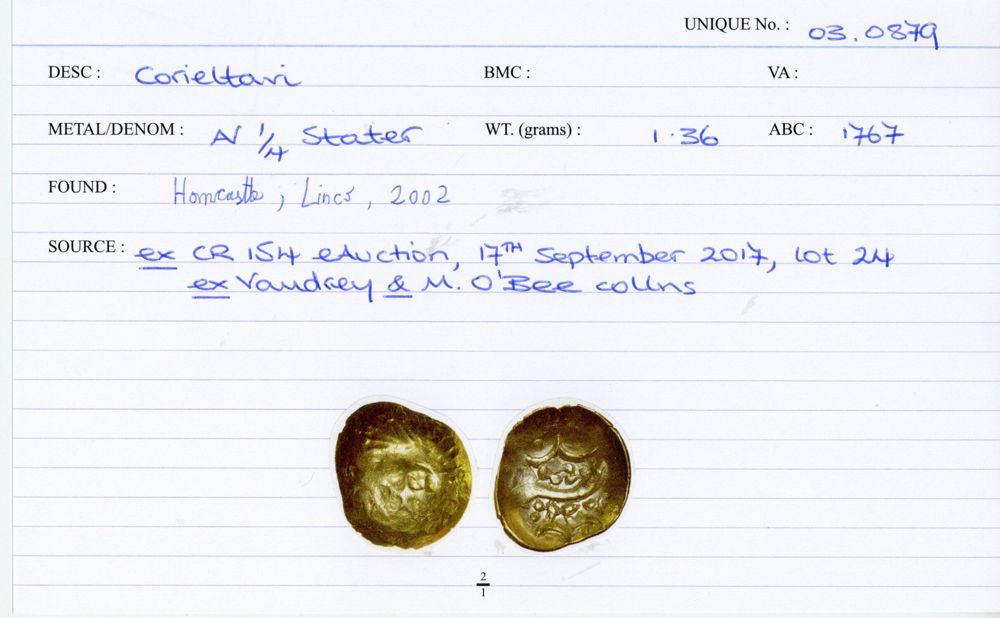 UNIQUE No. : 03.0879
DESC : Corieltavi BMC : VA :
METAL/DENOM : AV 1/4 Stater WT. (grams) : 1.36 ABC : 1767
FOUND : Horncastle, Lincs, 2002
SOURCE : ex CR 154 eAuction, 17TH September 2017, lot 24
ex Vaudrey & M. O'Bee collns
2
1